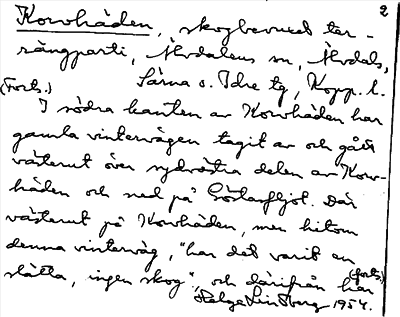 2
Korvhåden, skogbevuxet ter-
rängparti, Älvdalens sn, Älvdals,
Särna o. Idre tg, Kopp. l.
(Forts.)
I södra kanten av Korvhåden har
gamla vintervägen tagit av och gått
västerut över sydvästra delen av Korv-
håden och ned på Göstanfljot. Där
västerut på Korvhåden, men hitom
denna vinterväg, "har det varit en
slätta, ingen skog", och därifrån har
(forts.)
Helge Lindberg 1954.